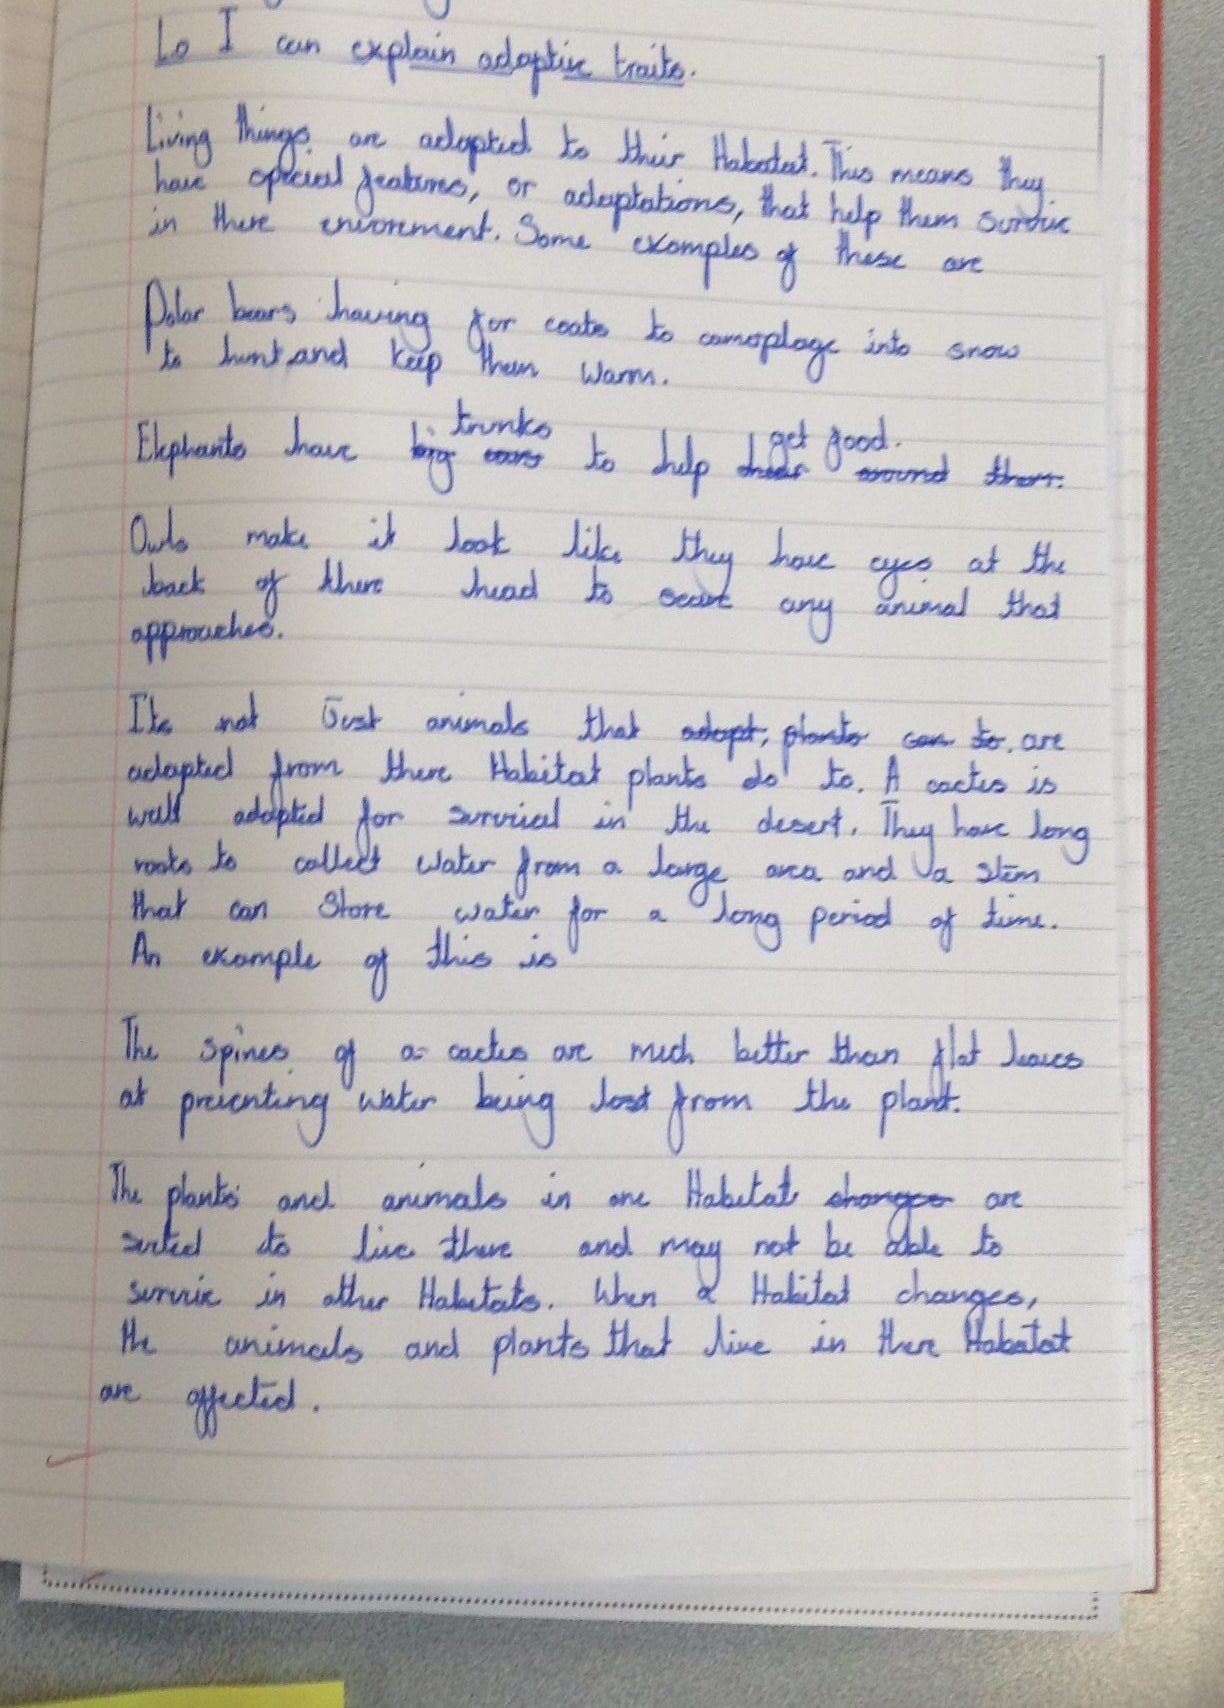 Lo I can explain adaptive traits.
Living things are adapted to their Habatat. This means they
have special features, or adaptations, that help them survive
in there enviorement. Some examples of these are
Polar bears having fur coats to camoplage into snow
to hunt and keep them warm.
trunks get food.
Elephants have big ears to help hear around them.
Owls make it look like they have eyes at the
back of there head to scare any animal that
approaches.
Its not Just animals that adapt, plants can to. are
adapted from there Habitat plants do to. A cactus is
well adapted for survival in the desert. They have long
roots to collect water from a large area and a stem
that can Store water for a long period of time.
An example of this is
The spines of a cactus are much better than flat leaves
at preventing water being lost from the plant.
The plants and animals in one Habitat changes are
suited to live there and may not be able to
survive in other Habitats. When a Habitat changes,
the animals and plants that live in there Habatat
are affected.